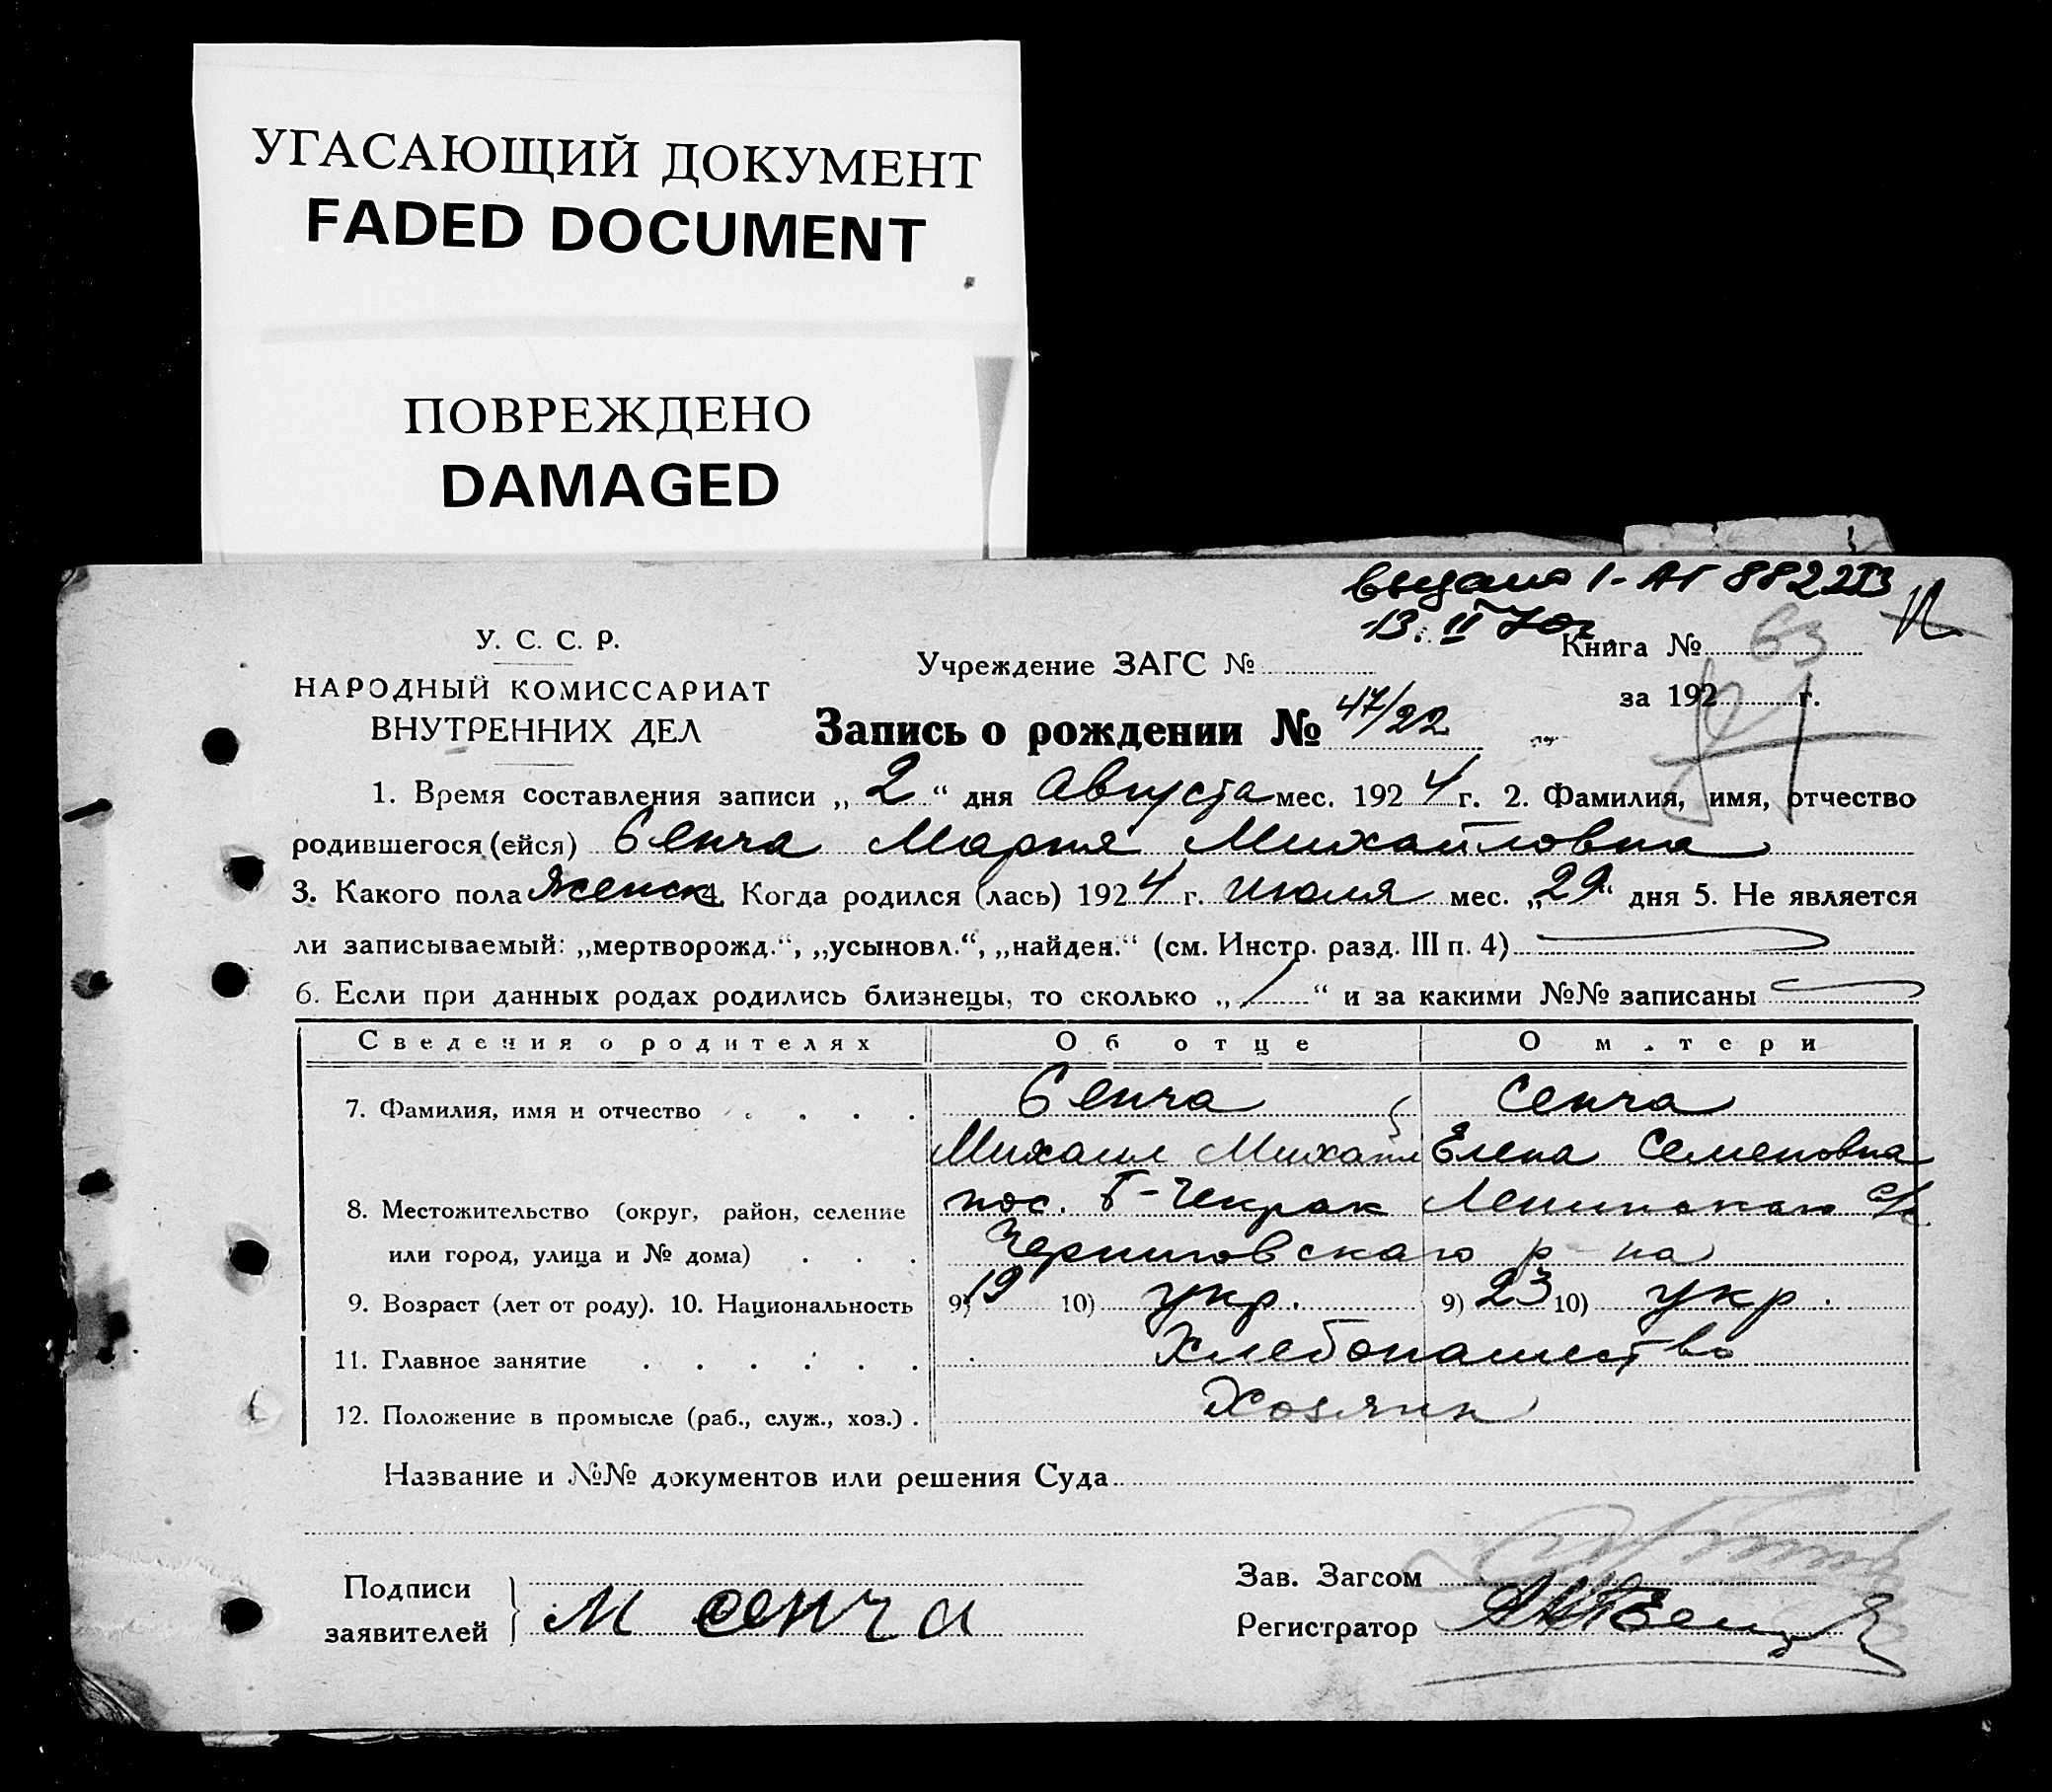 УГАСАЮЩИЙ ДОКУМЕНТ
FADED DOCUMENT
ПОВРЕЖДЕНО
DAMAGED
выдано I-АГ 882213
13.II 70г.
У. С. С. Р.
НАРОДНЫЙ КОМИССАРИАТ
ВНУТРЕННИХ ДЕЛ
Учреждение ЗАГС №
Книга № 63
за 192 г.
Запись о рождении № 47/22
1. Время составления записи „ 2 “ дня Августа мес. 192 4 г. 2. Фамилия, имя, отчество
родившегося (ейся) Сенча Мария Михайловна
3. Какого пола женск 4. Когда родился (лась) 192 4 г. июля мес. „ 29 “ дня 5. Не является
ли записываемый: „мертворожд.“, „усыновл.“, „найден.“ (см. Инстр. разд. III п. 4)
6. Если при данных родах родились близнецы, то сколько „ “ и за какими №№ записаны
Сведения о родителях Об отце О м.тери
7. Фамилия, имя и отчество Сенча Сенча
Михаил Михайл Елена Семеновна
8. Местожительство (округ, район, селение пос. Б-Чекрак Ленинскаго с/с
или город, улица и № дома) Черниговскаго р-на
9. Возраст (лет от роду). 10. Национальность 9) 19 10) укр. 9) 23 10) укр.
11. Главное занятие Хлебопашество
12. Положение в промысле (раб., служ., хоз.) Хозяин
Название и №№ документов или решения Суда
Подписи
заявителей М Сенча
Зав. Загсом
Регистратор